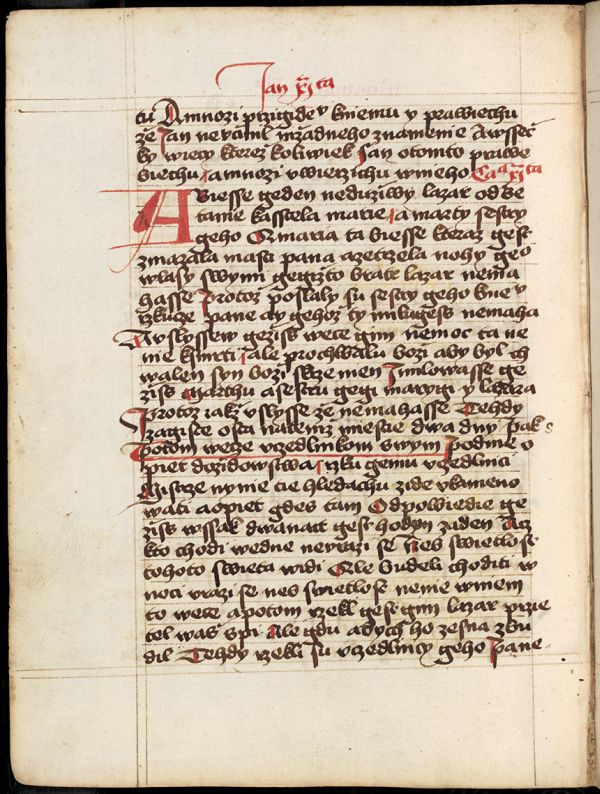 Jan xi ta
tu A mnozi przigidev kniemu y prawiechu
ze Jan neucinil mzadneho znamenie A wssec
ky wiecy kterez koliwiek Jan otomto prawe
biechu a mnozi vwierzichu wnieho Ca xi ta
A Biesse geden neduziwy lazar od Be
tanie kasstela marie a marty sestry
geho A maria ta biesse kteraz gest
zmazala masti pana azetrzela nohy geo
wlasy swymi gegizto bratr lazar nema
hasse Protoz poslaly su sestry geho knev
rzkuce pane ay gehoz ty milugess nemaha
A vslyssew geziss wece gim nemoc ta ne
nie ksmrti ale prochwalu bozi aby byl ch
walen syn bozi skrze nien J milowasse ge
ziss Marthu a sestru gegi marygi y lazara
Protoz iakz vslysse ze nemahasse Tehdy
zagiste osta natemz miestie dwa dny pak
Potom wece vczedlnikom swym Podme o
piet dozidowstwa rzku gemu vczedlnici
Mistrze nynie tie hledachu zide vkameno
wati aopiet gdes tam Odpowiedie ge
ziss wssak dwanact gest hodyn zaden Acz
kto chodi wedne nevrazi se nes swietlost
tohoto swieta widi Ale budeli choditi w
noci vrazi se nes swietlost nenie wniem
to wece apotom rzekl gest gim lazar przie
tel was spi Ale gdu abych ho zesna zbu
dil Tehdy rzekli su vczedlnicy geho Pane